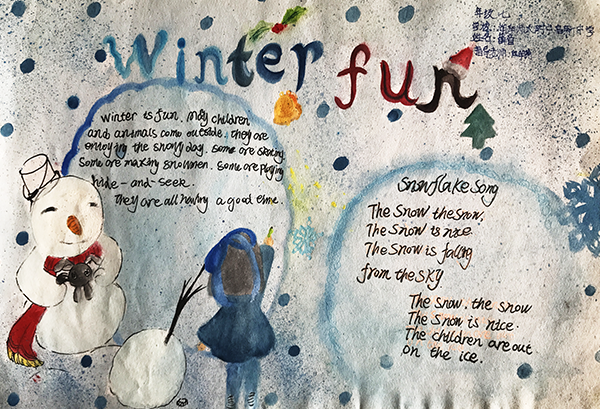 Winter fun
年级:七
winter is fun, many children
and animals come outside. They are
enjoying the snowy day. some are skating.
Some are making snowmen. Some are playing
hide-and-seek.
They are all having a good time.
Snowflake Song
The Snow the snow.
The Snow is nice.
The Snow is falling
from the sky
The snow. the snow
The Snow is nice.
The children are out
on the ice.